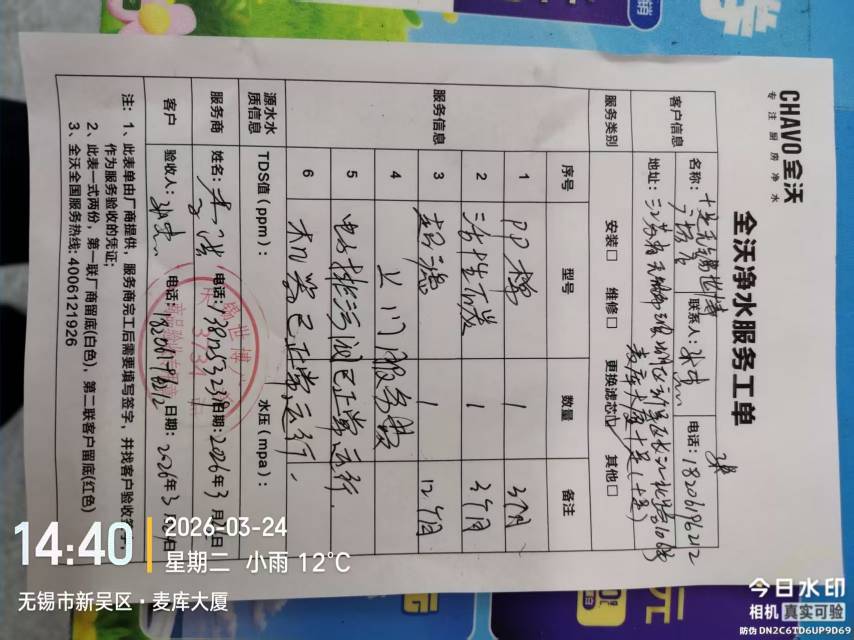 CHAVO全沃
专注厨房净水
全沃净水服务工单
客户信息
名称：
联系人：
电话：18206196212
地址：江苏省无锡市
麦库大厦十足(十足)
服务类别
安装□ 维修□ 更换滤芯 其他□
服务信息
序号 型号 数量 备注
1 PP棉 1 3个月
2 活性炭 1 3个月
3 超滤 1 12个月
4 上门服务费
5 电子排污阀已正常运行.
6 机器已正常运行.
源水水质信息
TDS值（ppm）： 水压（mpa）：
服务商
姓名： 电话： 日期：2026年3月 日
客户
验收人： 电话：18206196212 日期：2026年3月 日
注：1、此表单由厂商提供，服务商完工后需要填写签字，并找客户验收签字
作为服务验收的凭证；
2、此表一式两份，第一联厂商留底(白色)，第二联客户留底(红色)
3、全沃全国服务热线：4006121926
销
14:40
2026-03-24
星期二 小雨 12°C
无锡市新吴区·麦库大厦
今日水印
相机 真实可验
防伪 DN2C6TD6UP9D69